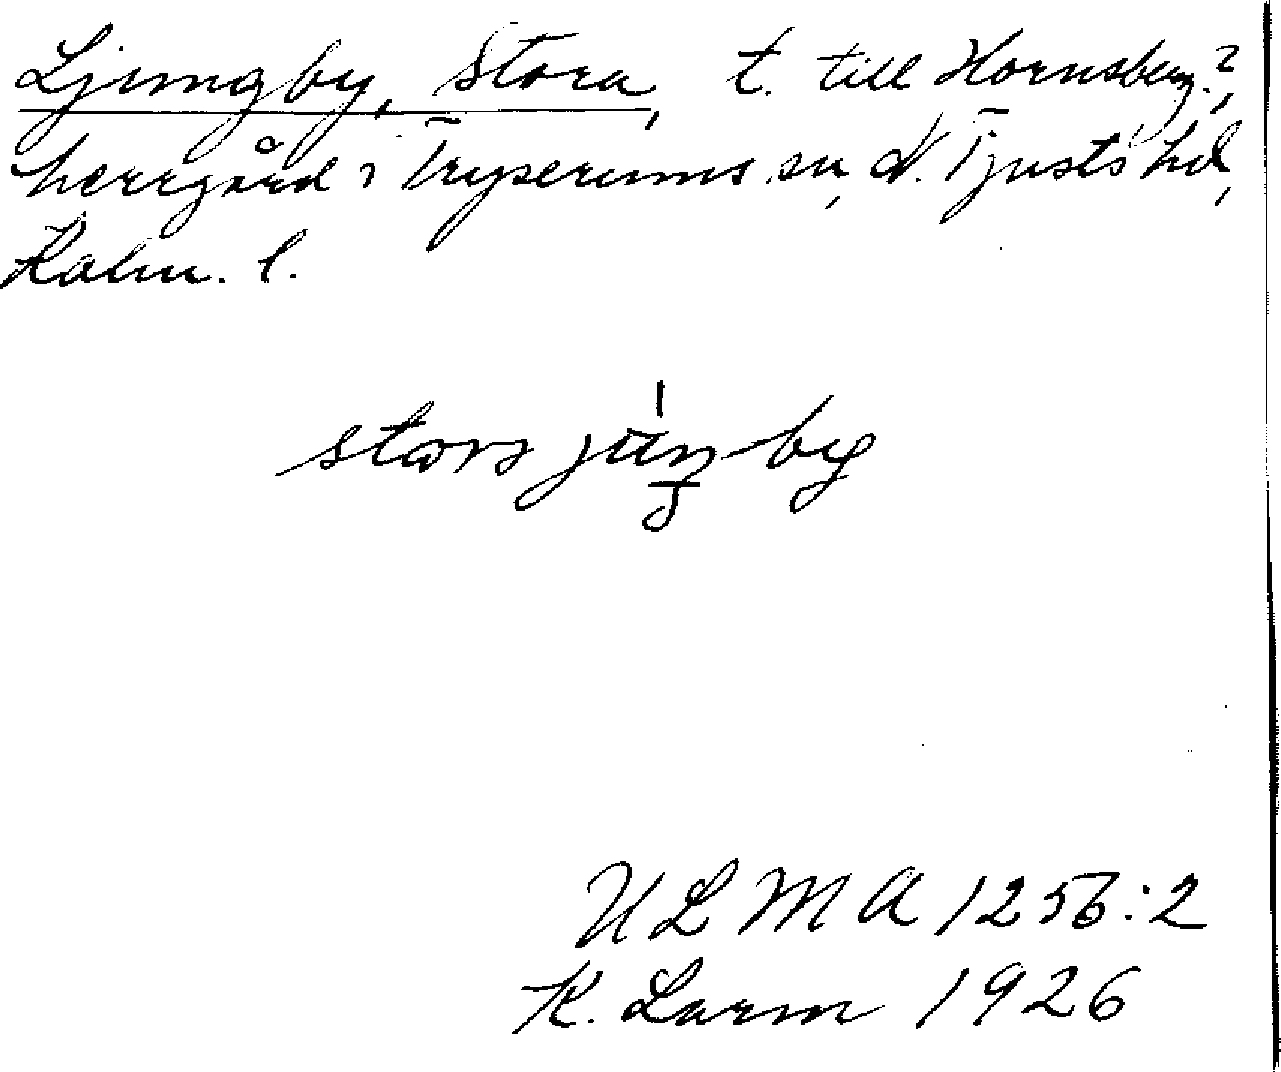 Ljungby, Stora, t. till Hornsberg?,
herrgård i Tryserums sn, N. Tjusts hd,
Kalm. l.
ULMA 1256:2
K. Larm 1926